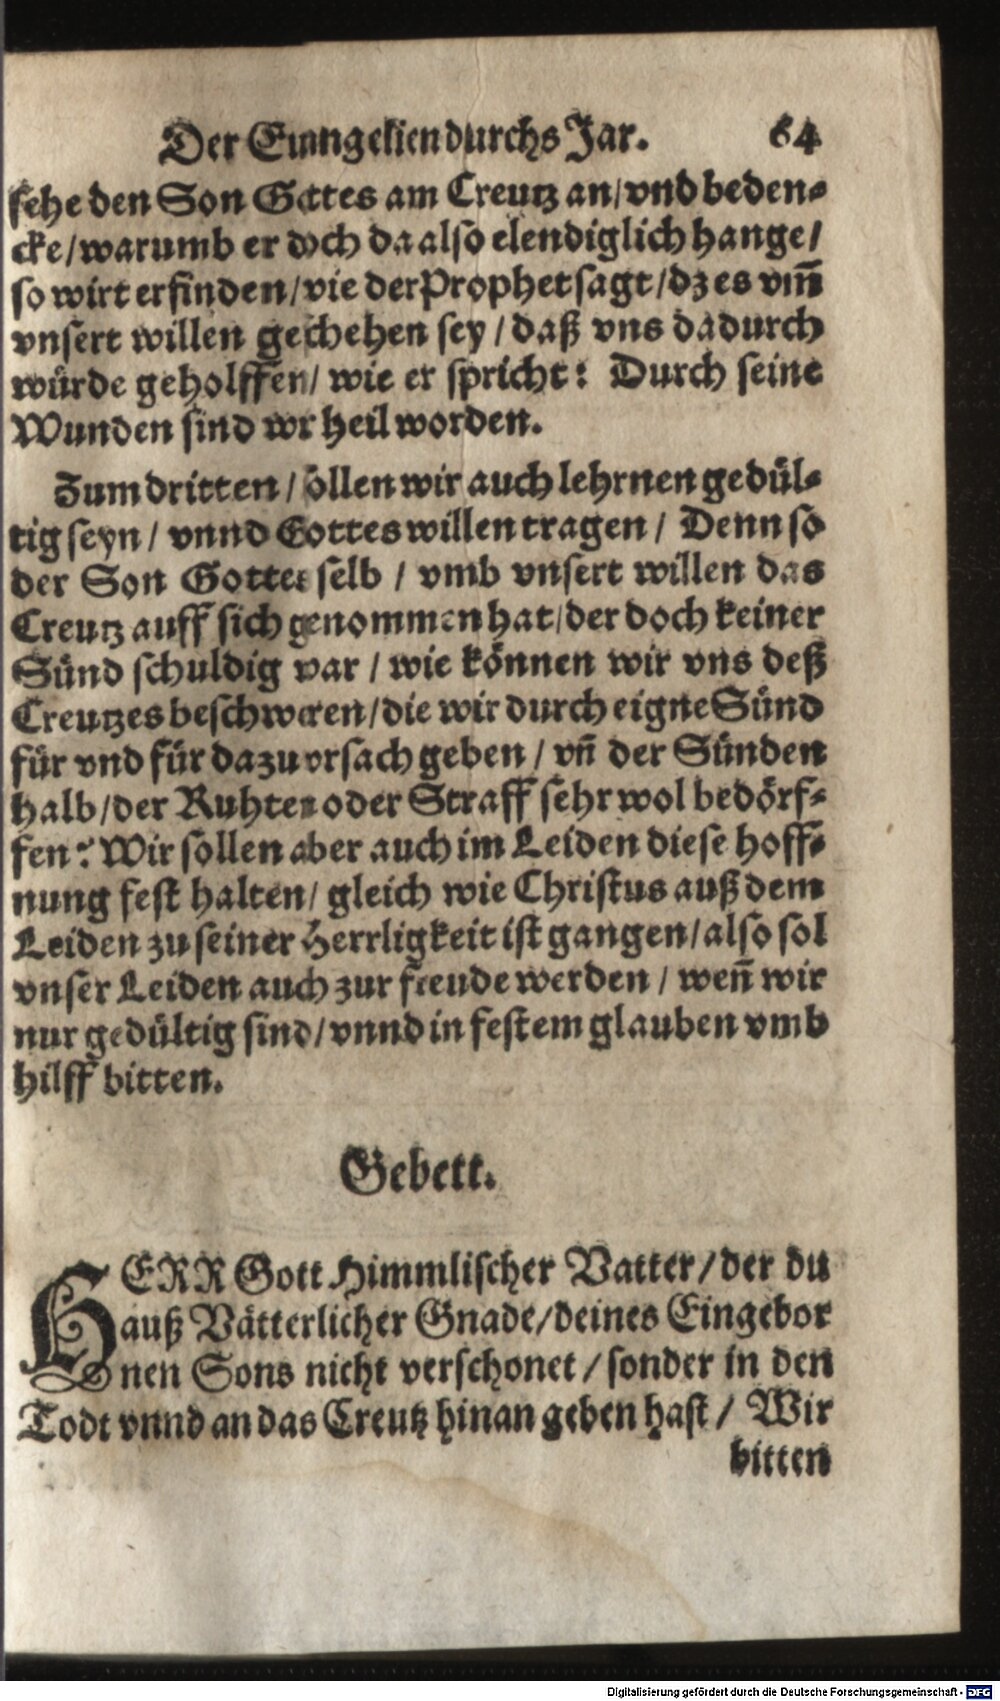 Der Euangelien durchs Jar. 64
sehe den Son Gottes am Creutz an/vnd beden-
cke/warumb er doch da also elendiglich hange/
so wirt erfinden/wie der Prophet sagt/dz es vm̃
vnsert willen geschehen sey/daß vns dadurch
würde geholffen/wie er spricht: Durch seine
Wunden sind wir heil worden.
Zum dritten/sollen wir auch lehrnen gedül-
tig seyn/vnnd Gottes willen tragen/Denn so
der Son Gottes selb/vmb vnsert willen das
Creutz auff sich genommen hat/der doch keiner
Sünd schuldig war/wie können wir vns deß
Creutzes beschweren/die wir durch eigne Sünd
für vnd für dazu vrsach geben/vñ der Sünden
halb/der Ruhten oder Straff sehr wol bedörf-
fen? Wir sollen aber auch im Leiden diese hoff-
nung fest halten/gleich wie Christus auß dem
Leiden zu seiner Herrligkeit ist gangen/also sol
vnser Leiden auch zur freude werden/weñ wir
nur gedültig sind/vnnd in festem glauben vmb
hilff bitten.
Gebett.
HERR Gott Himmlischer Vatter/der du
auß Vätterlicher Gnade/deines Eingebor
nen Sons nicht verschonet/sonder in den
Todt vnnd an das Creutz hinan geben hast/Wir
bitten
Digitalisierung gefördert durch die Deutsche Forschungsgemeinschaft - DFG